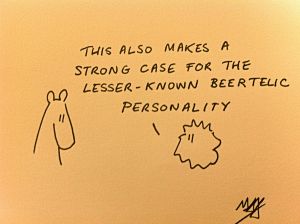 THIS ALSO MAKES A
STRONG CASE FOR THE
LESSER-KNOWN BEERTELIC
PERSONALITY